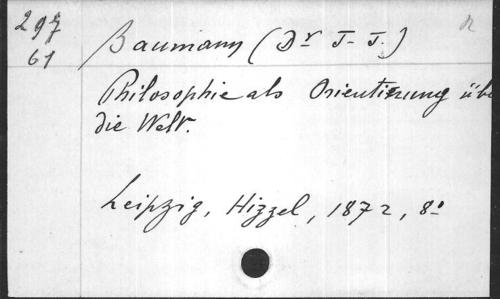 297
61
Baumann (Dr J. J.)
Philosophie als Orientirung übe
die Welt.
Leipzig, Hizzel, 1872, 8°